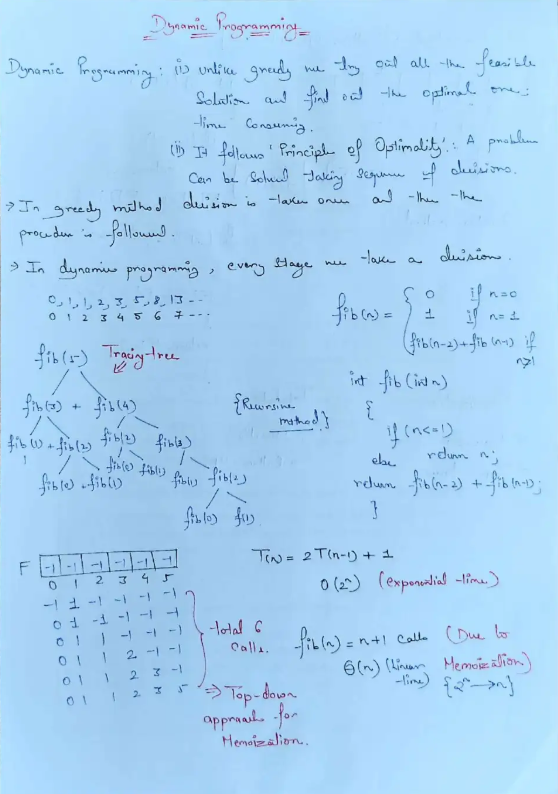 Dynamic Programming
Dynamic Programming : (i) unlike greedy we try out all the feasible
Solution and find out the optimal one;
time Consuming.
(ii) It follows 'Principle of Optimality': A problem
Can be Solved taking Sequence of decisions.
→ In greedy method decision is taken once and then the
procedure is followed.
→ In dynamic programming, every stage we take a decision.
0, 1, 1, 2, 3, 5, 8, 13 ---
0 1 2 3 4 5 6 7 ---
fib(n) = { 0 if n=0
1 if n=1
fib(n-2)+fib(n-1) if
n>1
fib(5) Tracing-tree
fib(3) + fib(4)
fib(1) + fib(2) fib(2) fib(3)
1 fib(0) + fib(1) fib(0) fib(1) fib(1) fib(2)
fib(0) f(1)
{Recursive
method}
int fib(int n)
{
if (n<=1)
return n;
else
return fib(n-2) + fib(n-1);
}
T(n) = 2T(n-1) + 1
O(2ⁿ) (exponential-time)
F -1 -1 -1 -1 -1 -1
0 1 2 3 4 5
-1 1 -1 -1 -1 -1
0 1 -1 -1 -1 -1
0 1 1 -1 -1 -1
0 1 1 2 -1 -1
0 1 1 2 3 -1
0 1 1 2 3 5
total 6
Calls.
⇒ Top-down
approach for
Memoization.
fib(n) = n+1 Calls (Due to
Memoization)
θ(n) (Linear
-time) {2ⁿ → n}